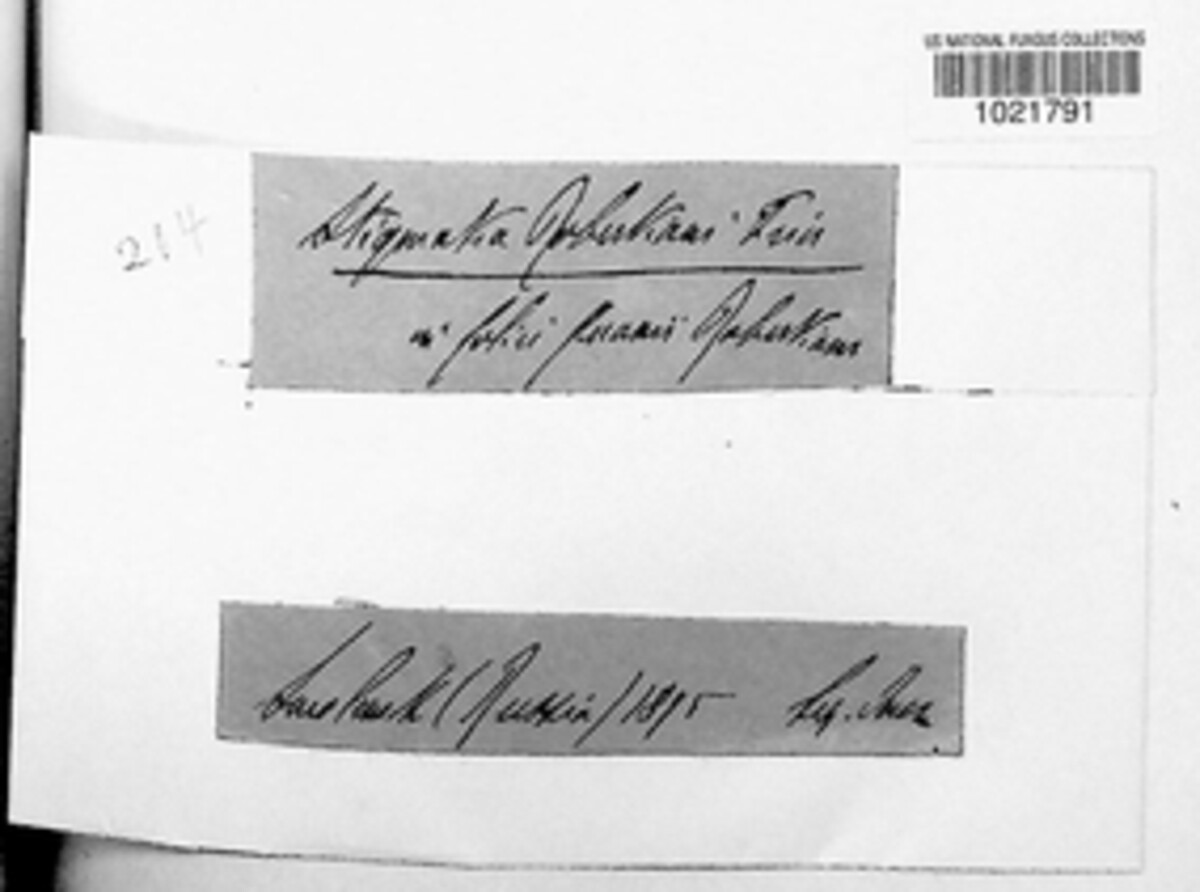 US NATIONAL FUNGUS COLLECTIONS
1021791
214
Stigmatea Robertiani Fries
folii Geranii Robertiani
(Russia) 1895 Leg.